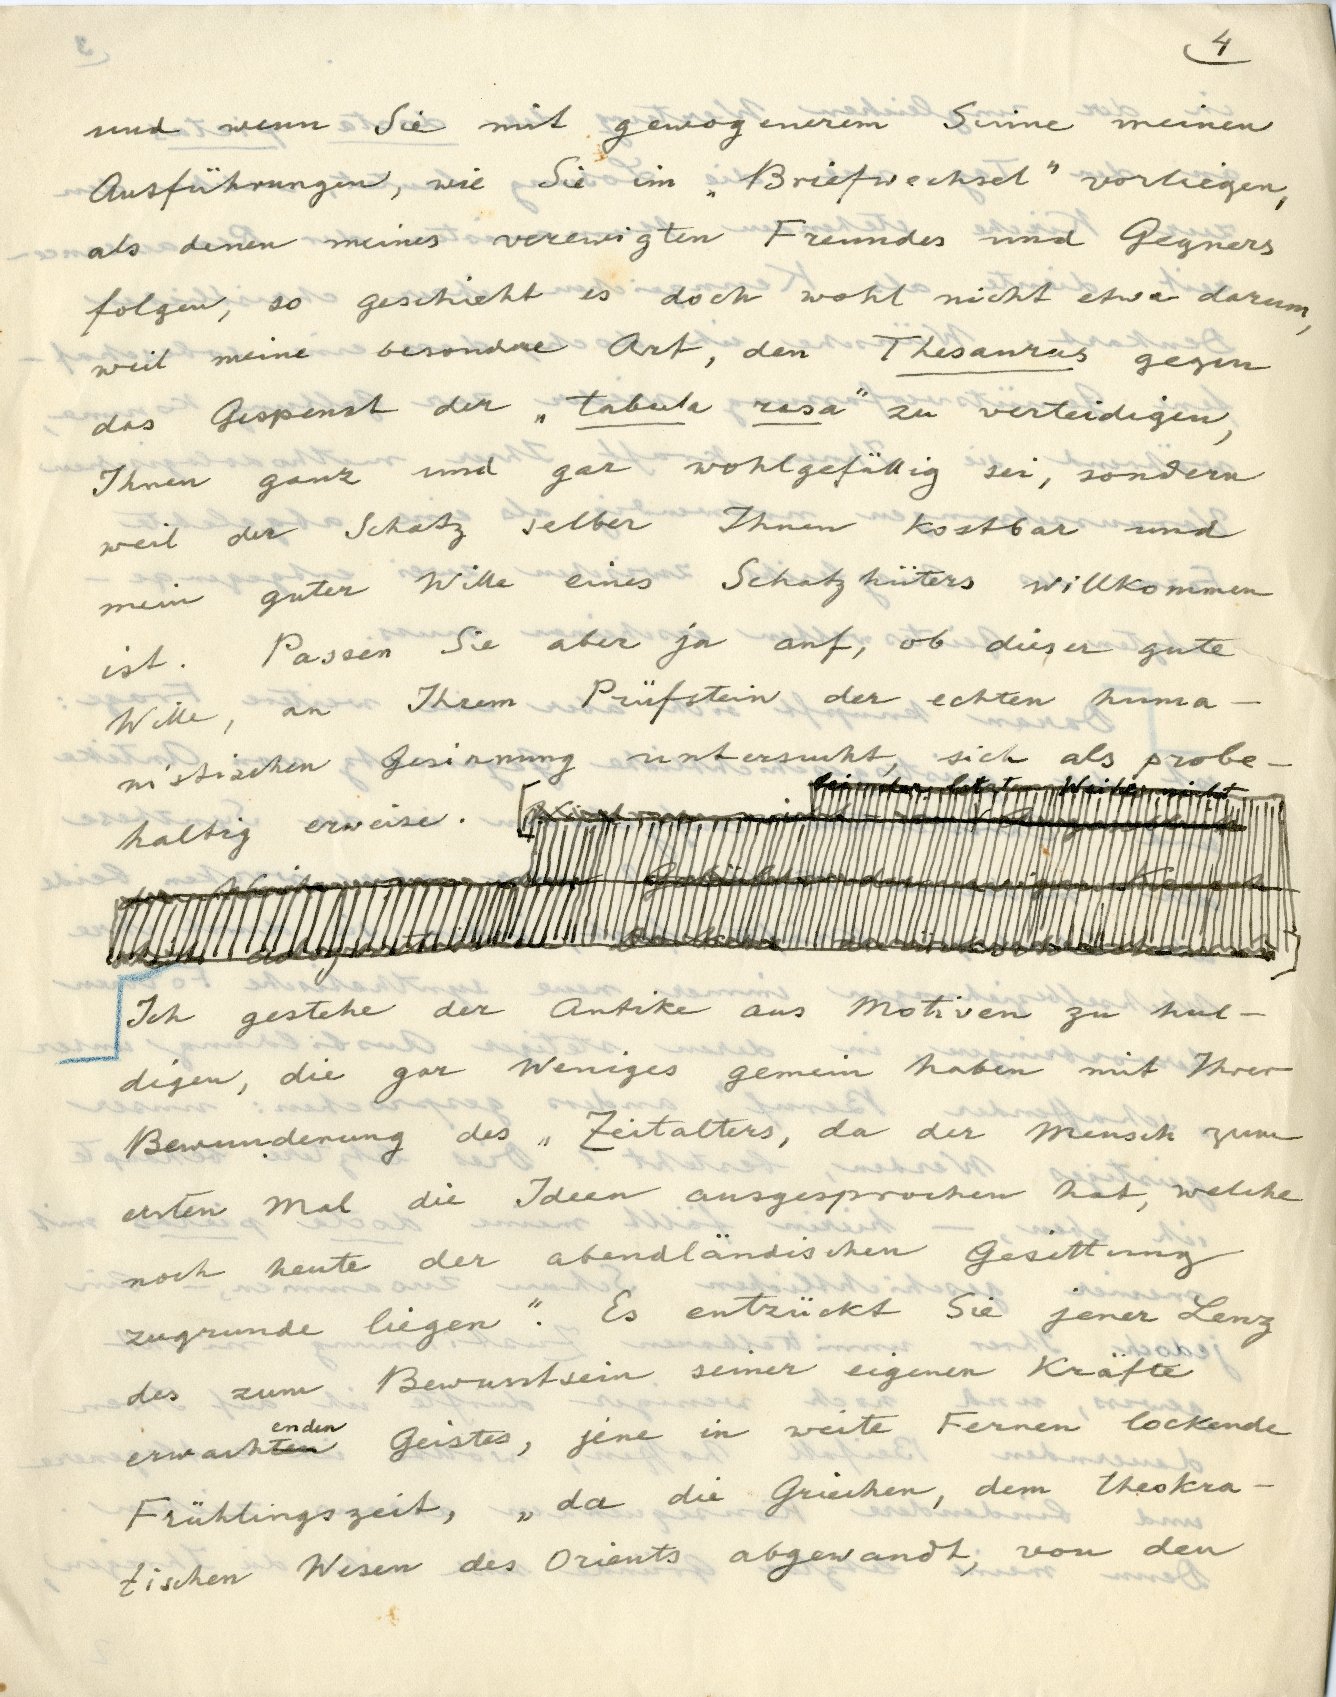 4
und wenn Sie mit gewogenerem Sinne meinen
Ausführungen, wie Sie im „Briefwechsel" vorliegen,
als denen meines verewigten Freundes und Gegners
folgen, so geschieht es doch wohl nicht etwa darum,
weil meine besondere Art, den Thesaurus gegen
das Gespenst der „tabula rasa" zu verteidigen,
Ihnen ganz und gar wohlgefällig sei, sondern
weil der Schatz selber Ihnen kostbar und
mein guter Wille eines Schatzhüters willkommen
ist. Passen Sie aber ja auf, ob dieser gute
Wille, an Ihrem Prüfstein der echten huma-
nistischen Gesinnung untersucht, sich als probe-
haltig erweise. [
]
Ich gestehe der Antike aus Motiven zu hul-
digen, die gar Weniges gemein haben mit Ihrer
Bewunderung des „Zeitalters, da der Mensch zum
ersten Mal die Ideen ausgesprochen hat, welche
noch heute der abendländischen Gesittung
zugrunde liegen". Es entzückt Sie jener Lenz
des zum Bewusstsein seiner eigenen Kräfte
enden
erwachten Geistes, jene in weite Fernen lockende
Frühlingszeit, „da die Griechen, dem theokra-
tischen Wesen des Orients abgewandt, von den